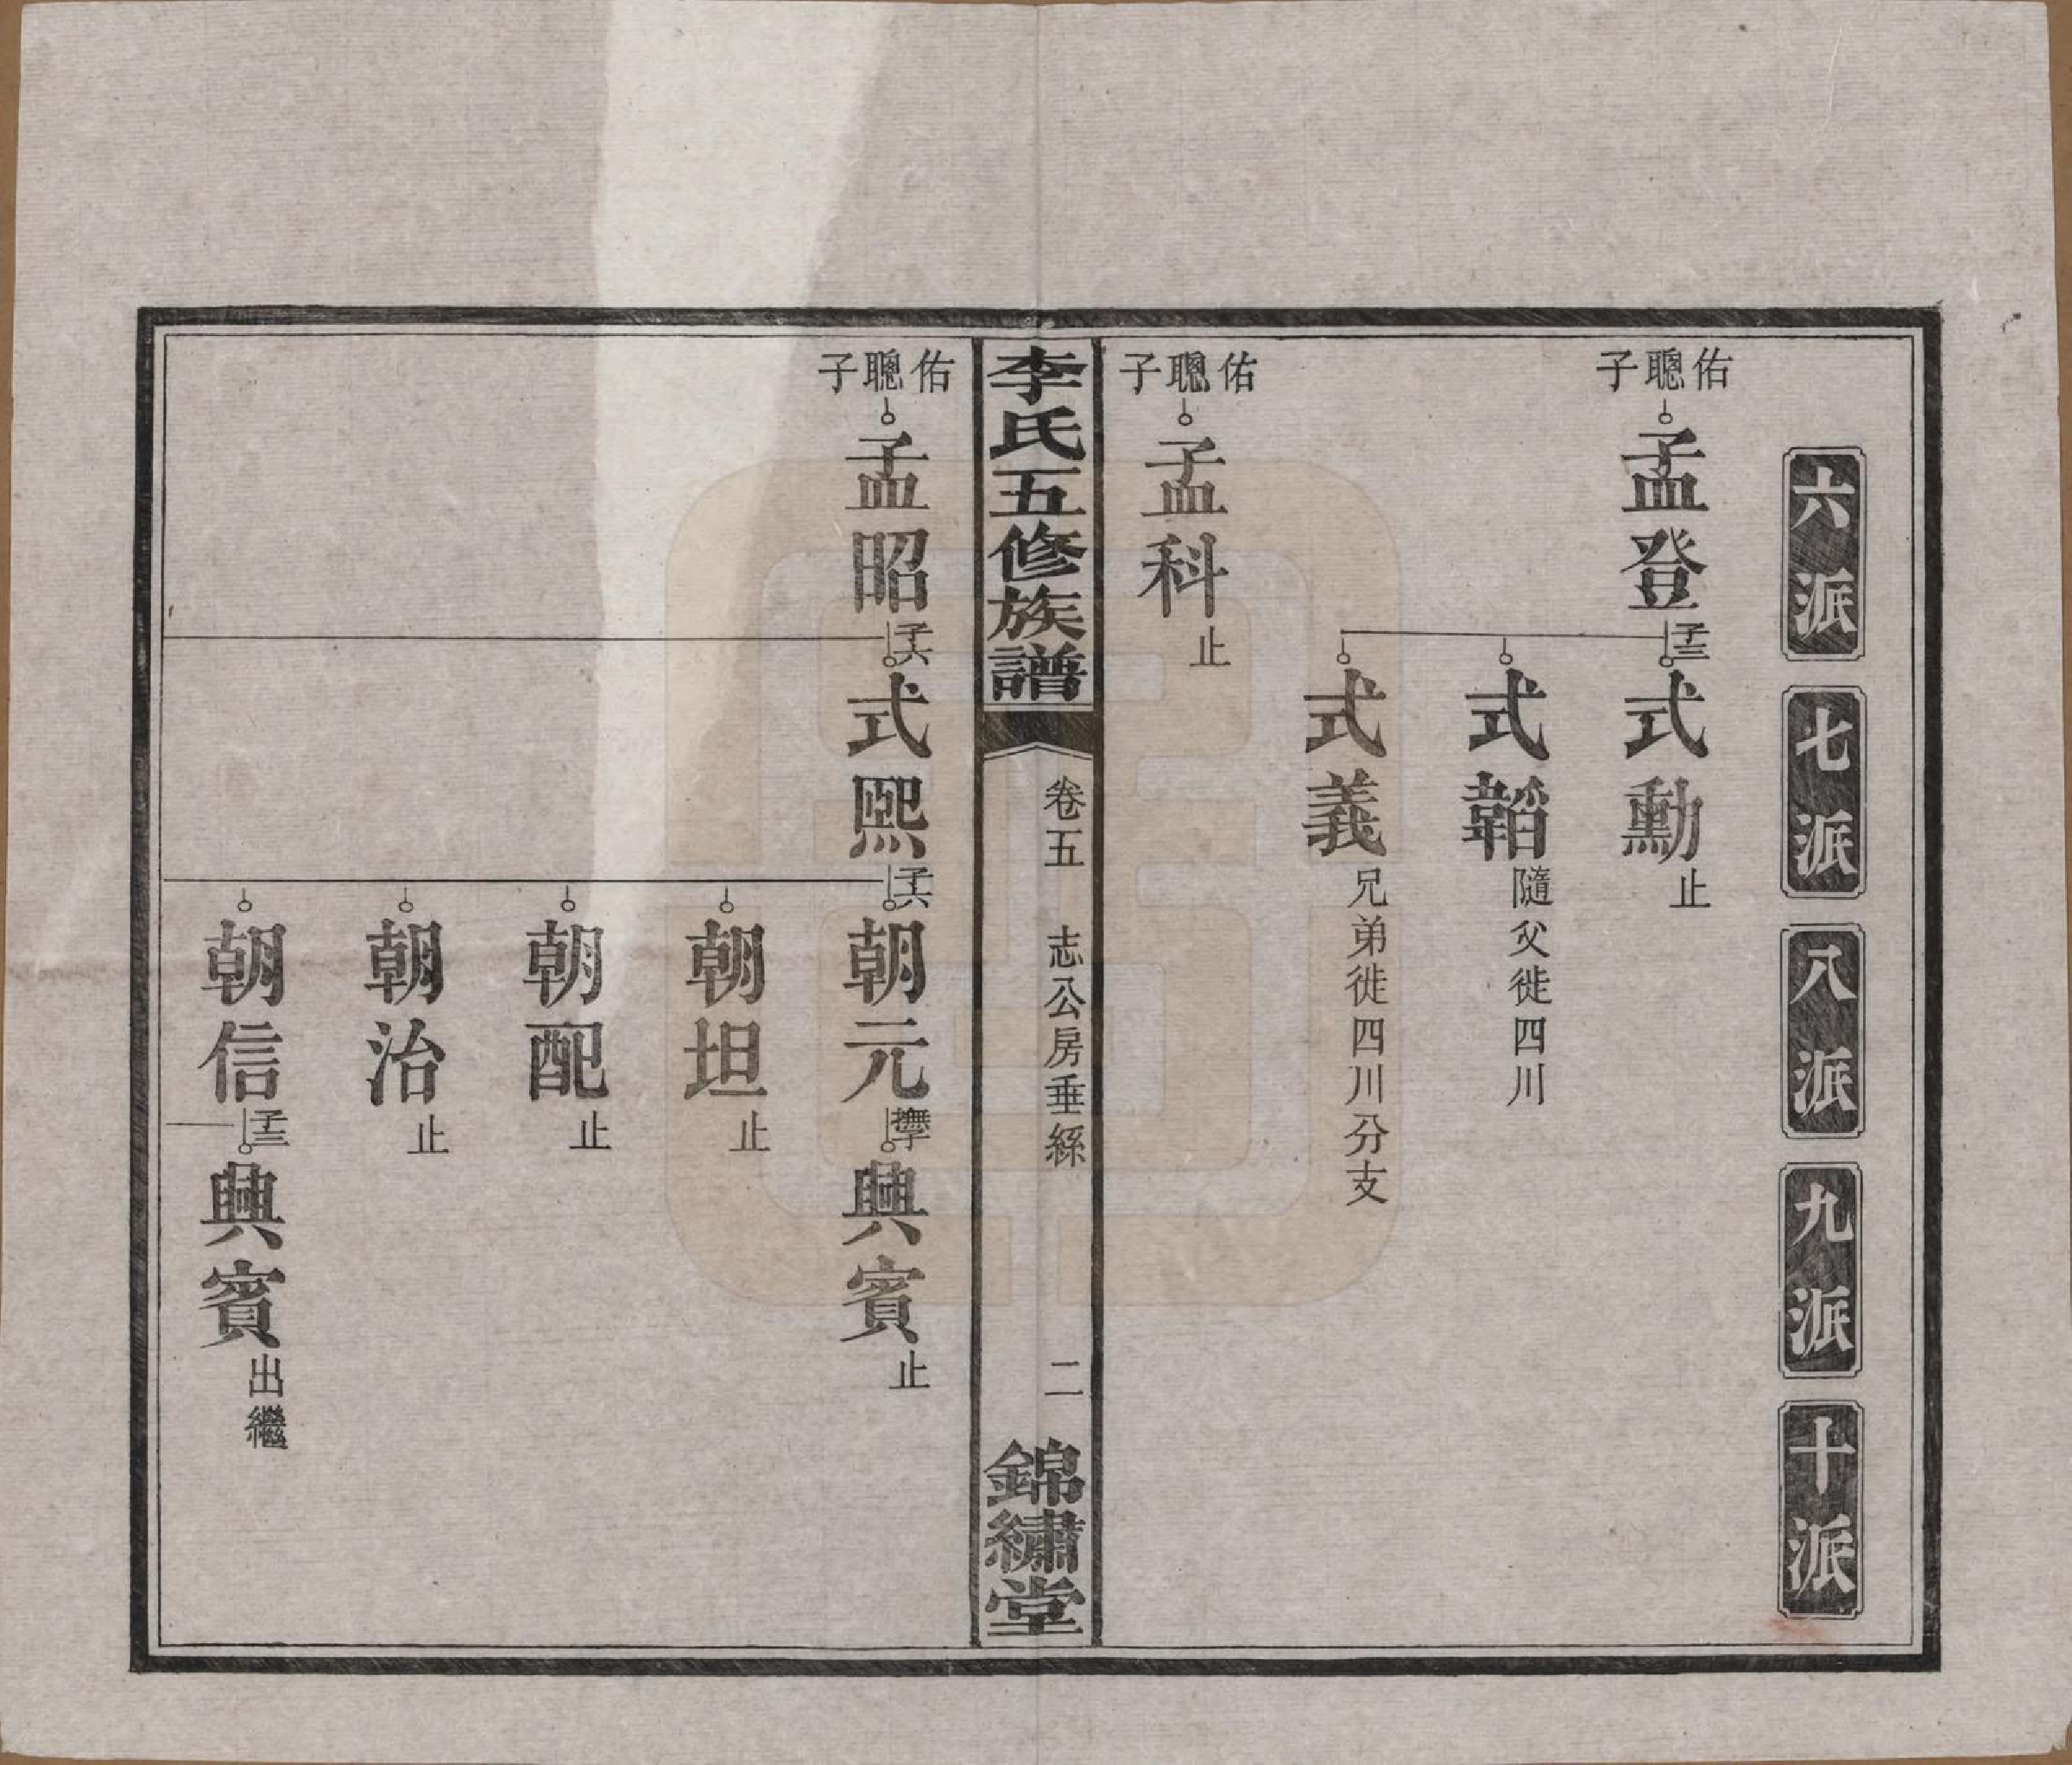 六派
七派
八派
九派
十派
佑聰子
孟登
子三
式勳
止
式韜
隨父徙四川
式義
兄弟徙四川分支
佑聰子
孟科
止
李氏五修族譜
卷五
志公房垂絲
二
錦繡堂
佑聰子
孟昭
子六
式熙
子六
朝元
撫子
興賓
止
朝坦
止
朝配
止
朝治
止
朝信
子三
興賓
出繼